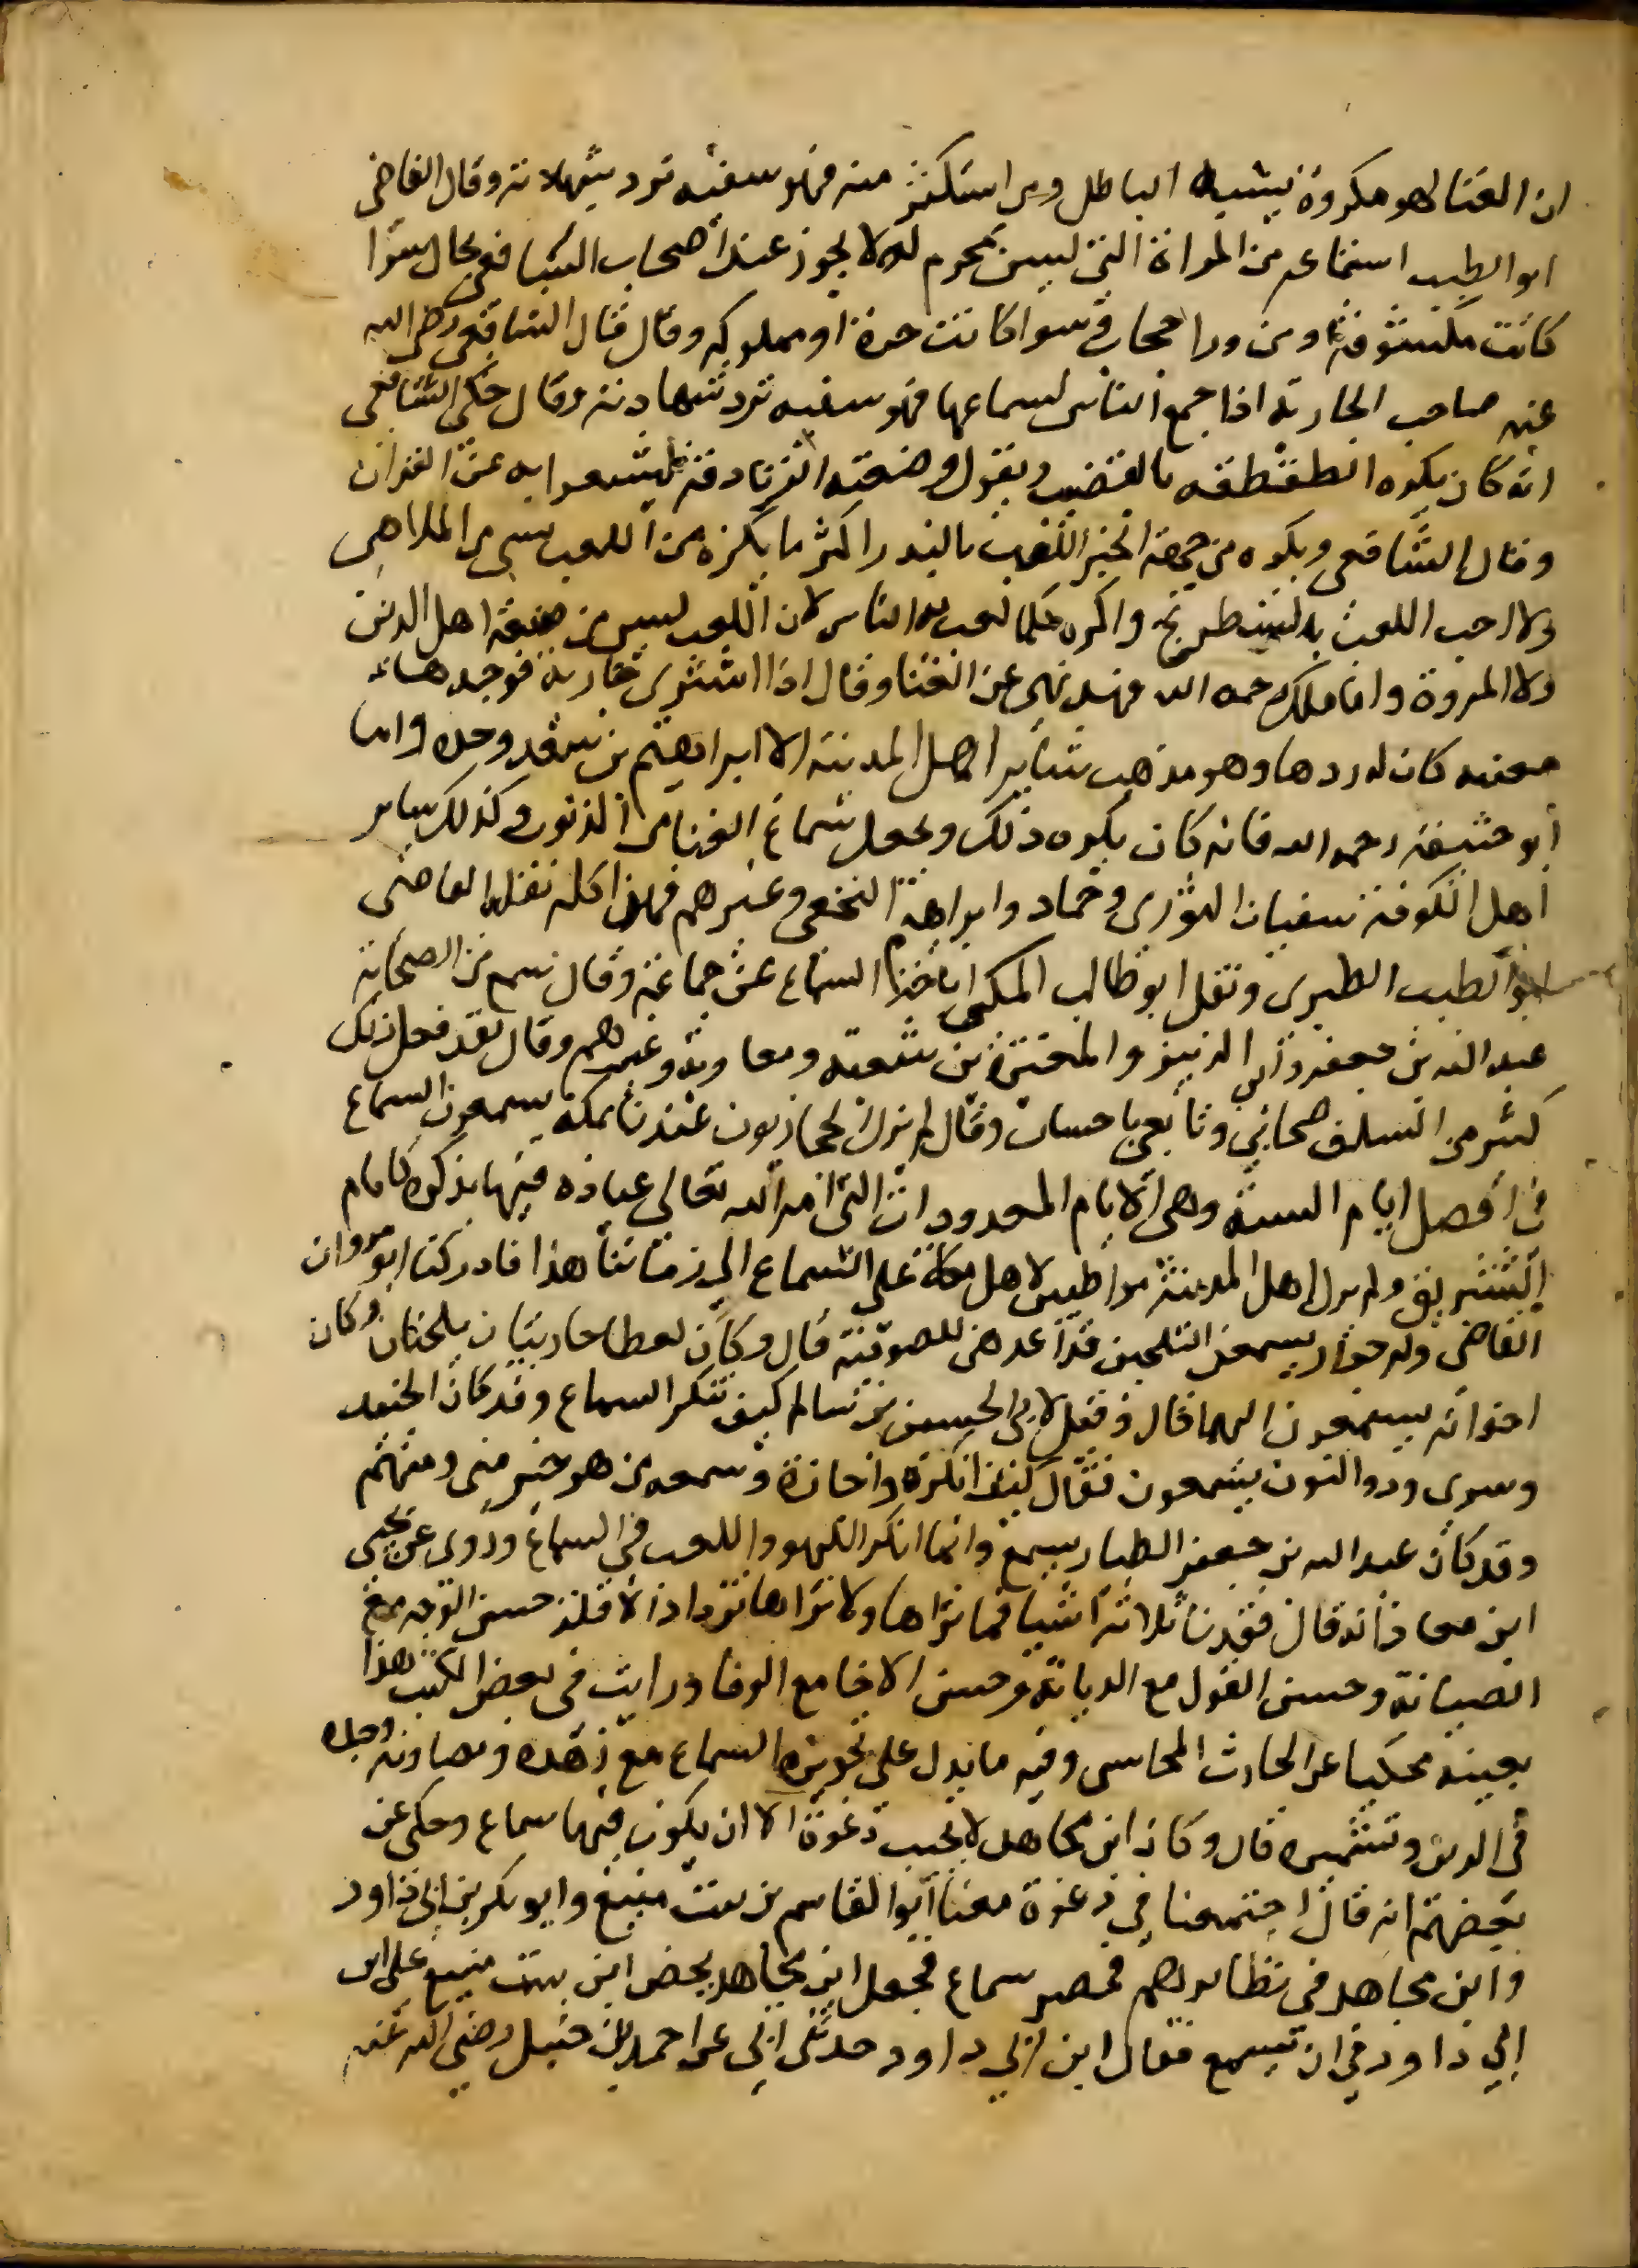 ان الغنا لهو مكروه يشبه الباطل ومن استكثر منه فهو سفيه ترد شهادته وقال القاضى
ابو الطيب استماعه من المراة التي ليس بمحرم له لا يجوز عند اصحاب الشافعي بحال سوا
كانت مكشوفة او من ورا حجاب سوا كانت حرة او مملوكه وقال قال الشافعي رضي الله
عنه صاحب الجارية اذا جمع الناس لسماعها فهو سفيه ترد شهادته وقال حكى الشافعى
انه كان يكره الطقطقه بالقضيب ويقول وضعته الزنادقة ليشتغلوا به عن القران
وقال الشافعى ويكره من جهة الخبر اللعب بالنرد اكثر ما يكره من اللعب بشي من الملاهى
ولا احب اللعب بالشطرنج واكره كلما لعب به الناس لان اللعب ليس من صنعة اهل الدين
ولا المروة واما ملك رحمه الله فقد نهى عن الغنا وقال اذا اشترى جارية فوجدها
مغنيه كان له ردها وهو مذهب ساير اهل المدينة الا ابراهيم بن سعد وحده واما
ابو حنيفة رحمه الله فانه كان يكره ذلك ويجعل سماع الغنا من الذنوب وكذلك ساير
اهل الكوفة سفيان الثورى وحماد وابراهيم النخعى وغيرهم فهذا كله نقله القاضى
ابو الطيب الطبرى ونقل ابو طالب المكى اباحة السماع عن جماعة وقال سمع من الصحابة
عبد الله بن جعفر وابن الزبير والمغيرة بن شعبه ومعاوية وغيرهم وقال لقد فعل ذلك
كثير من السلف صحابي وتابعي باحسان وقال لم يزل الحجازيون عندنا بمكة يسمعون السماع
في افضل ايام السنة وهى الايام المعدودات التى امر الله تعالى عباده فيها بذكره كايام
التشريق ولم يزل اهل المدينة مواظبين لاهل مكة على السماع الى زماننا هذا فادركنا ابو مروان
القاضى وله جوار يسمعن التلحين قد اعدهن للصوفية قال وكان لعطا جاريتان يلحنان وكان
اخوانه يسمعون اليهما قال وقيل لابى الحسن بن سالم كيف تنكر السماع وقد كان الجنيد
وسرى وذو النون يسمعون فقال كيف انكره واجازه وسمعه من هو خير منى ومنهم
وقد كان عبد الله بن جعفر الطيار يسمع وانما انكر اللهو واللعب في السماع وروى عن يحيى
ابن معاذ انه قال فقدنا ثلاثة اشيا فما نراها ولا نراها تزداد الا قلة حسن الوجه مع
الصيانة وحسن القول مع الديانة وحسن الاخا مع الوفا ورايت في بعض الكتب هذا
بعينه محكيا عن الحارث المحاسبى وفيه ما يدل على تجويزه السماع مع زهده وتصاونه وجده
فى الدين وتشميره قال وكان ابن مجاهد لا يجيب دعوة الا ان يكون فيها سماع وحكى عن
بعضهم انه قال اجتمعنا في دعوة معنا ابو القاسم بن بنت منيع وابو بكر بن ابى داود
وابن مجاهد في نظايرهم فحضر سماع فجعل ابن مجاهد يحض ابن بنت منيع على ابن
ابي داود في ان يسمع فقال ابن ابي داود حدثنى ابي عن احمد بن حنبل رضي الله عنه